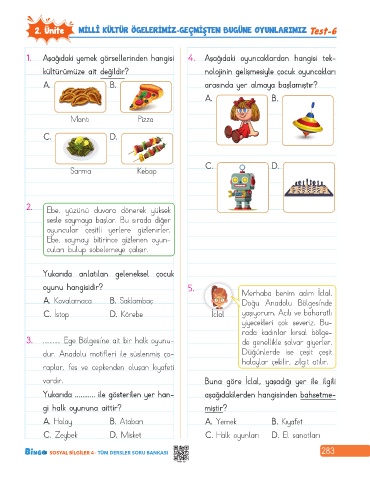 2. Ünite
MİLLİ KÜLTÜR ÖGELERİMİZ-GEÇMİŞTEN BUGÜNE OYUNLARIMIZ Test-6
1. Aşağıdaki yemek görsellerinden hangisi
kültürümüze ait değildir?
A.
B.
Mantı
Pizza
C.
D.
Sarma
Kebap
2.
Ebe, yüzünü duvara dönerek yüksek
sesle saymaya başlar. Bu sırada diğer
oyuncular çeşitli yerlere gizlenirler.
Ebe, saymayı bitirince gizlenen oyun-
cuları bulup sobelemeye çalışır.
Yukarıda anlatılan geleneksel çocuk
oyunu hangisidir?
A. Kovalamaca
B. Saklambaç
C. İstop
D. Körebe
3. .......... Ege Bölgesi'ne ait bir halk oyunu-
dur. Anadolu motifleri ile süslenmiş ça-
raplar, fes ve cepkenden oluşan kıyafeti
vardır.
Yukarıda ........... ile gösterilen yer han-
gi halk oyununa aittir?
A. Halay
B. Atabarı
C. Zeybek
D. Misket
4. Aşağıdaki oyuncaklardan hangisi tek-
nolojinin gelişmesiyle çocuk oyuncakları
arasında yer almaya başlamıştır?
A.
B.
C.
D.
5.
İclal
Merhaba benim adım İclal.
Doğu Anadolu Bölgesi'nde
yaşıyorum. Acılı ve baharatlı
yiyecekleri çok severiz. Bu-
rada kadınlar kırsal bölge-
de genellikle şalvar giyerler.
Düğünlerde ise çeşit çeşit
halaylar çekilir, zılgıt atılır.
Buna göre İclal, yaşadığı yer ile ilgili
aşağıdakilerden hangisinden bahsetme-
miştir?
A. Yemek
B. Kıyafet
C. Halk oyunları
D. El sanatları
BİNGO SOSYAL BİLGİLER 4 - TÜM DERSLER SORU BANKASI
283